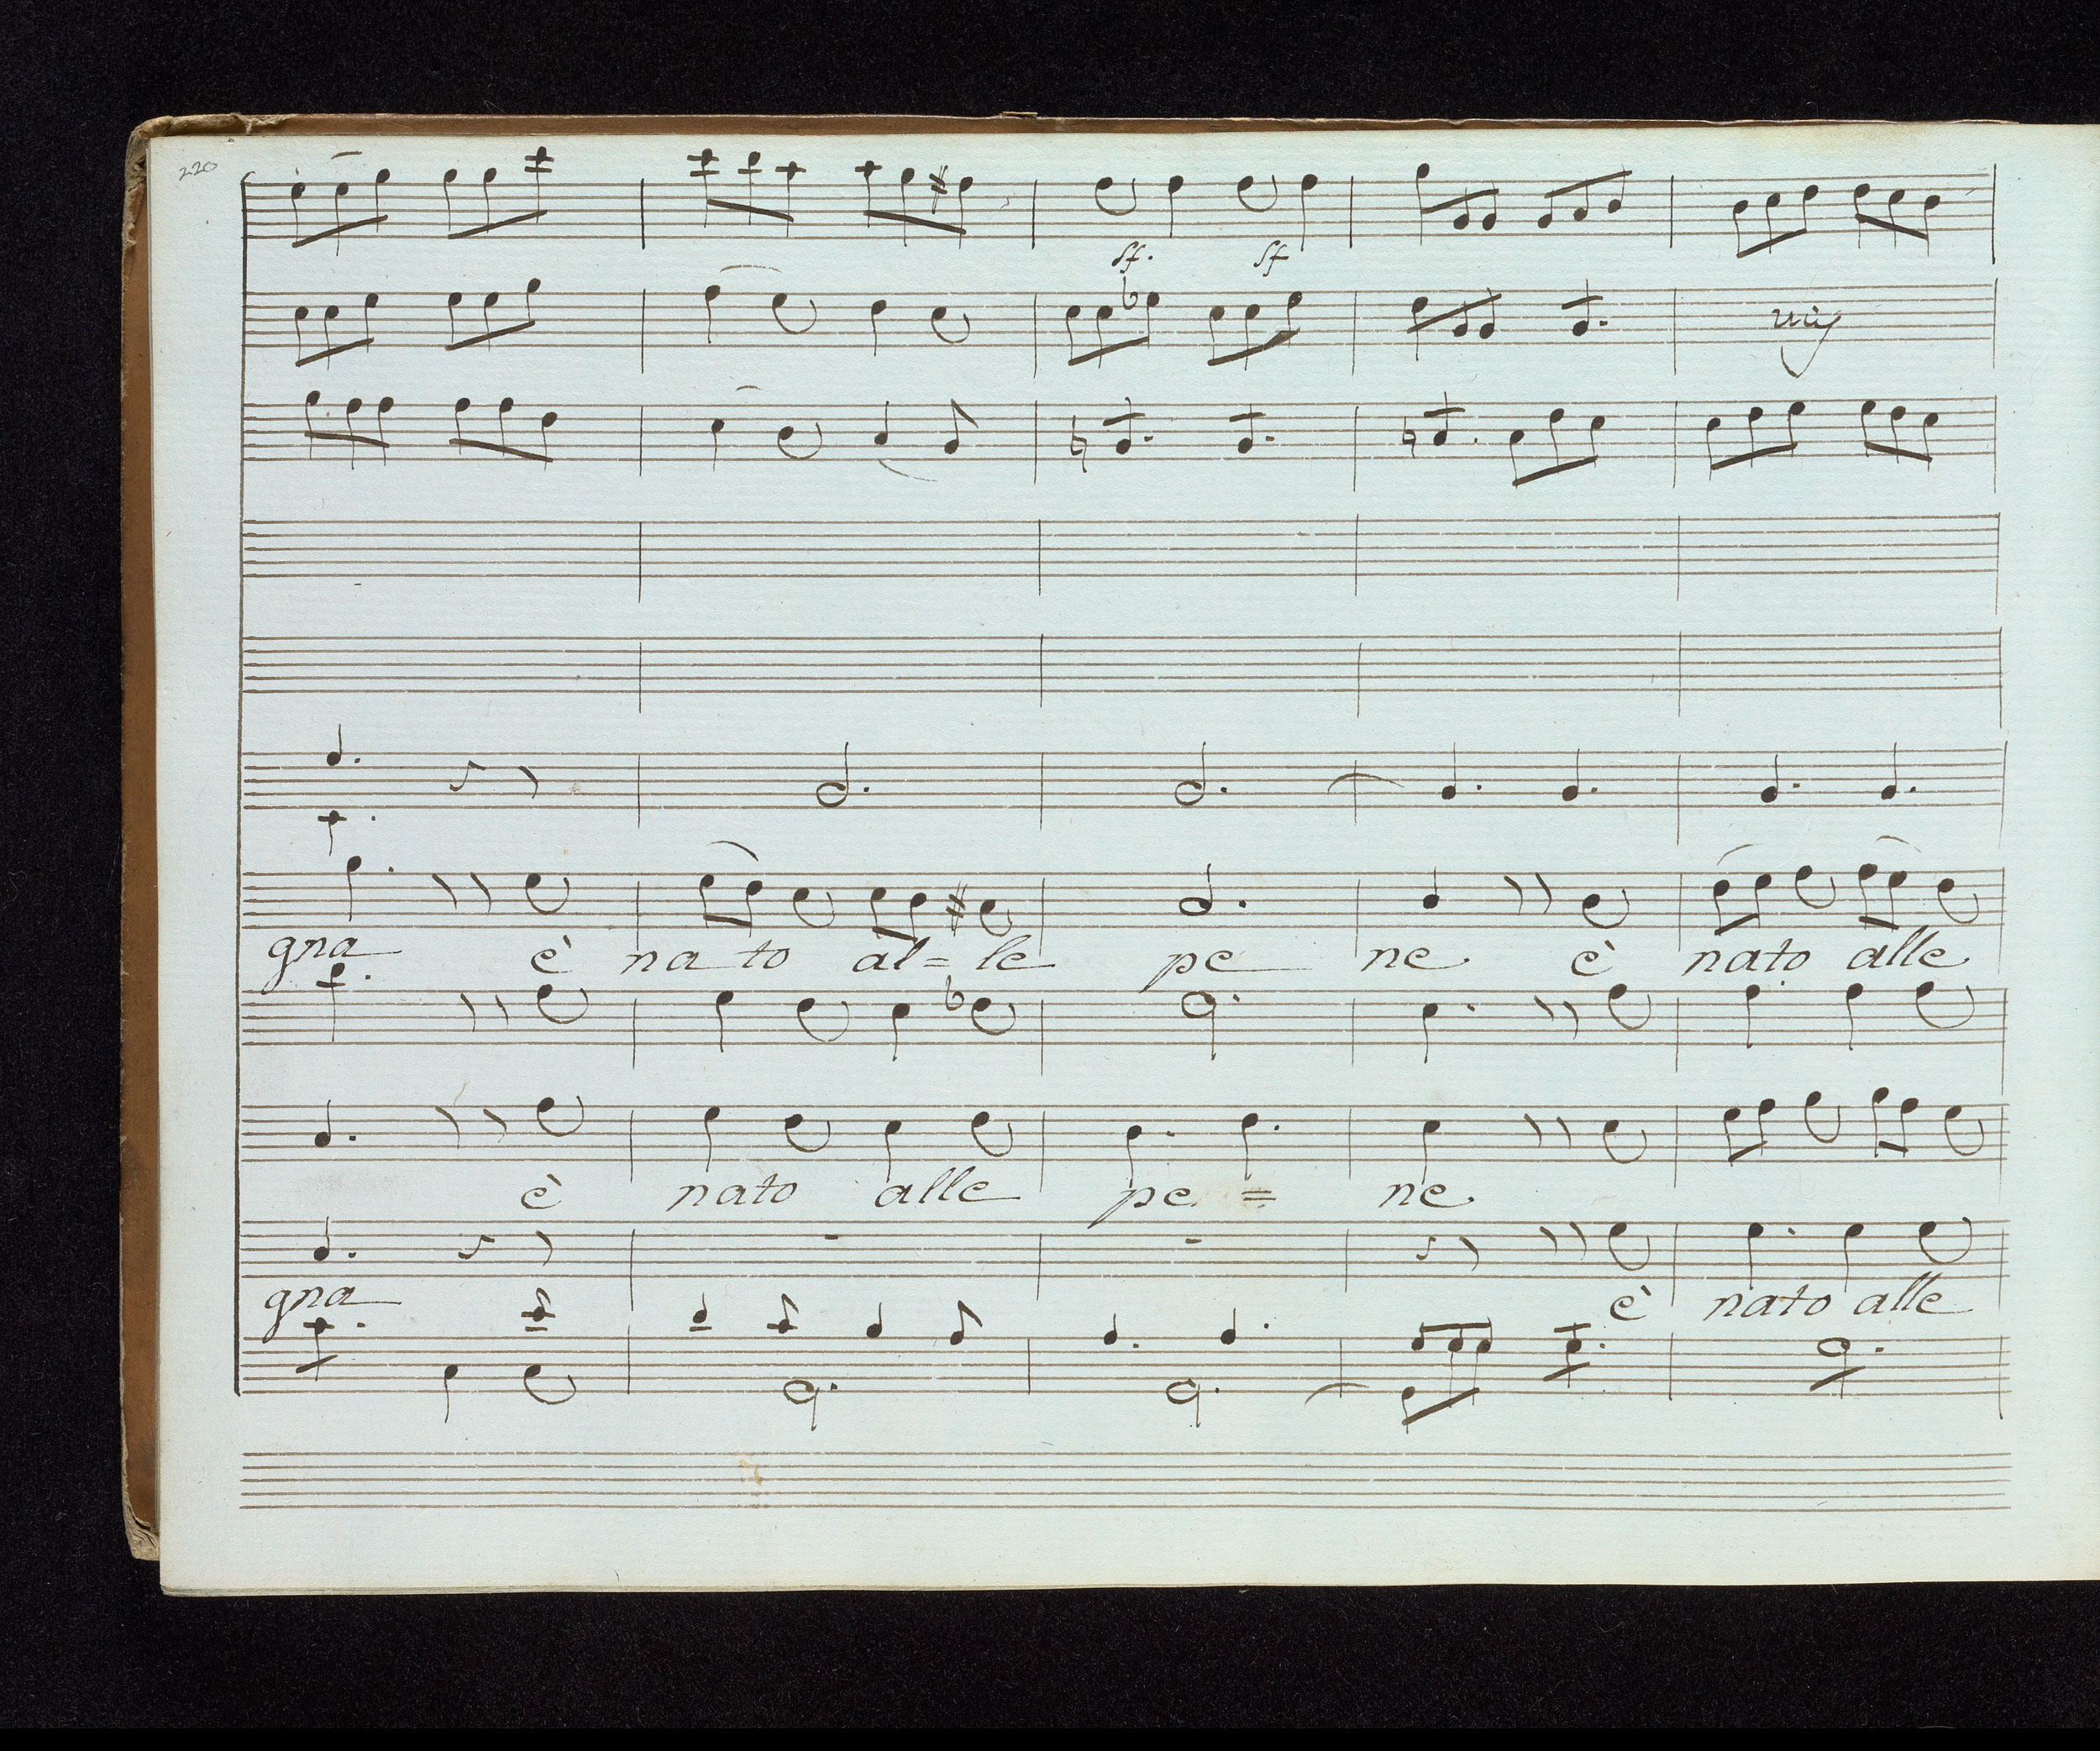 220
sf. sf
gna è na to al= le pe ne è nato alle
è nato alle pe = ne
gna è nato alle